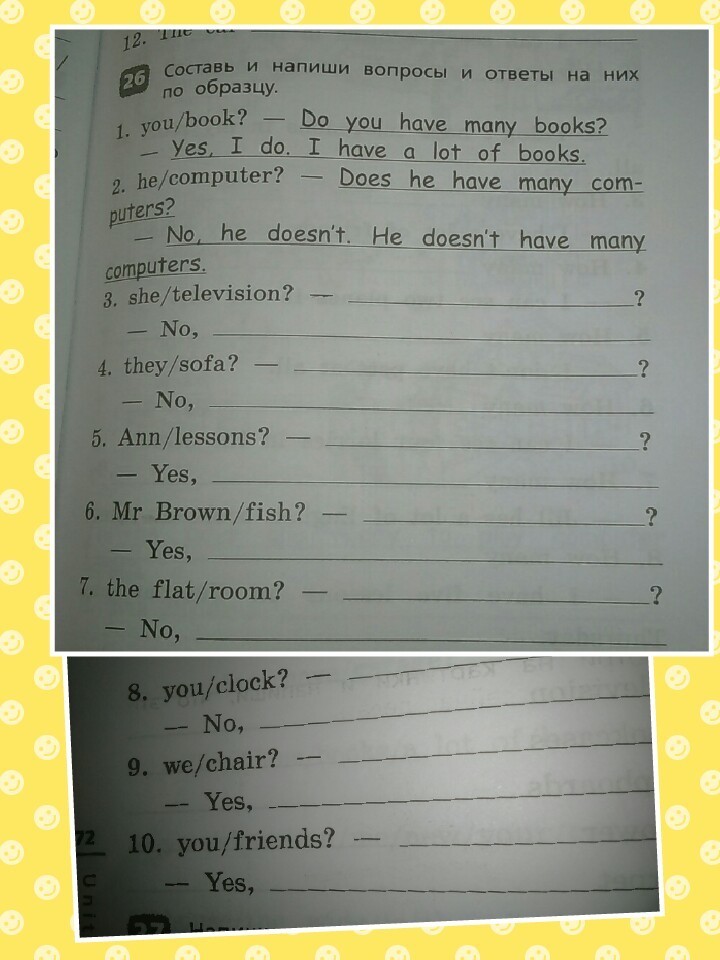 12. The
26 Составь и напиши вопросы и ответы на них
по образцу.
1. you/book? — Do you have many books?
— Yes, I do. I have a lot of books.
2. he/computer? — Does he have many com-
puters?
— No, he doesn't. He doesn't have many
computers.
3. she/television? — ?
— No,
4. they/sofa? — ?
— No,
5. Ann/lessons? — ?
— Yes,
6. Mr Brown/fish? — ?
— Yes,
7. the flat/room? — ?
— No,
8. you/clock? —
— No,
9. we/chair? —
— Yes,
72
10. you/friends? —
— Yes,
Unit
27